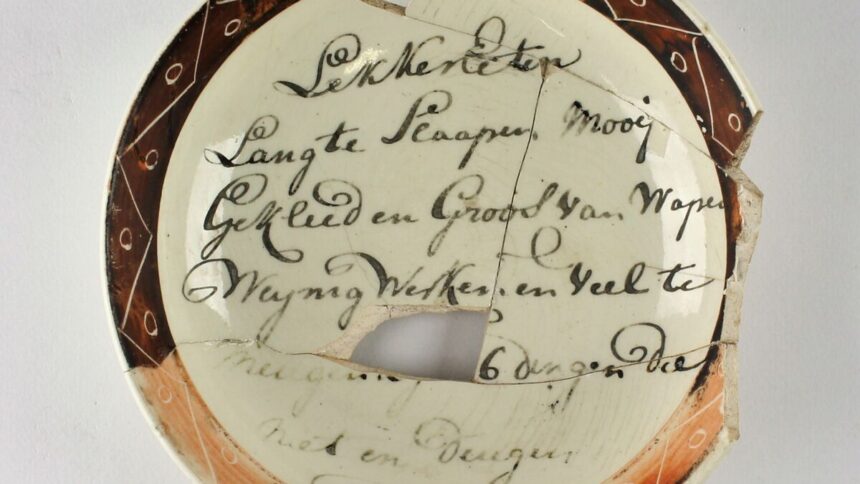 Lekker Eten
Langte Slaapen Mooij
Gekleed en Groos van Wapen
Weynig Werken en Veel te
6 dingen die
niet en deugen